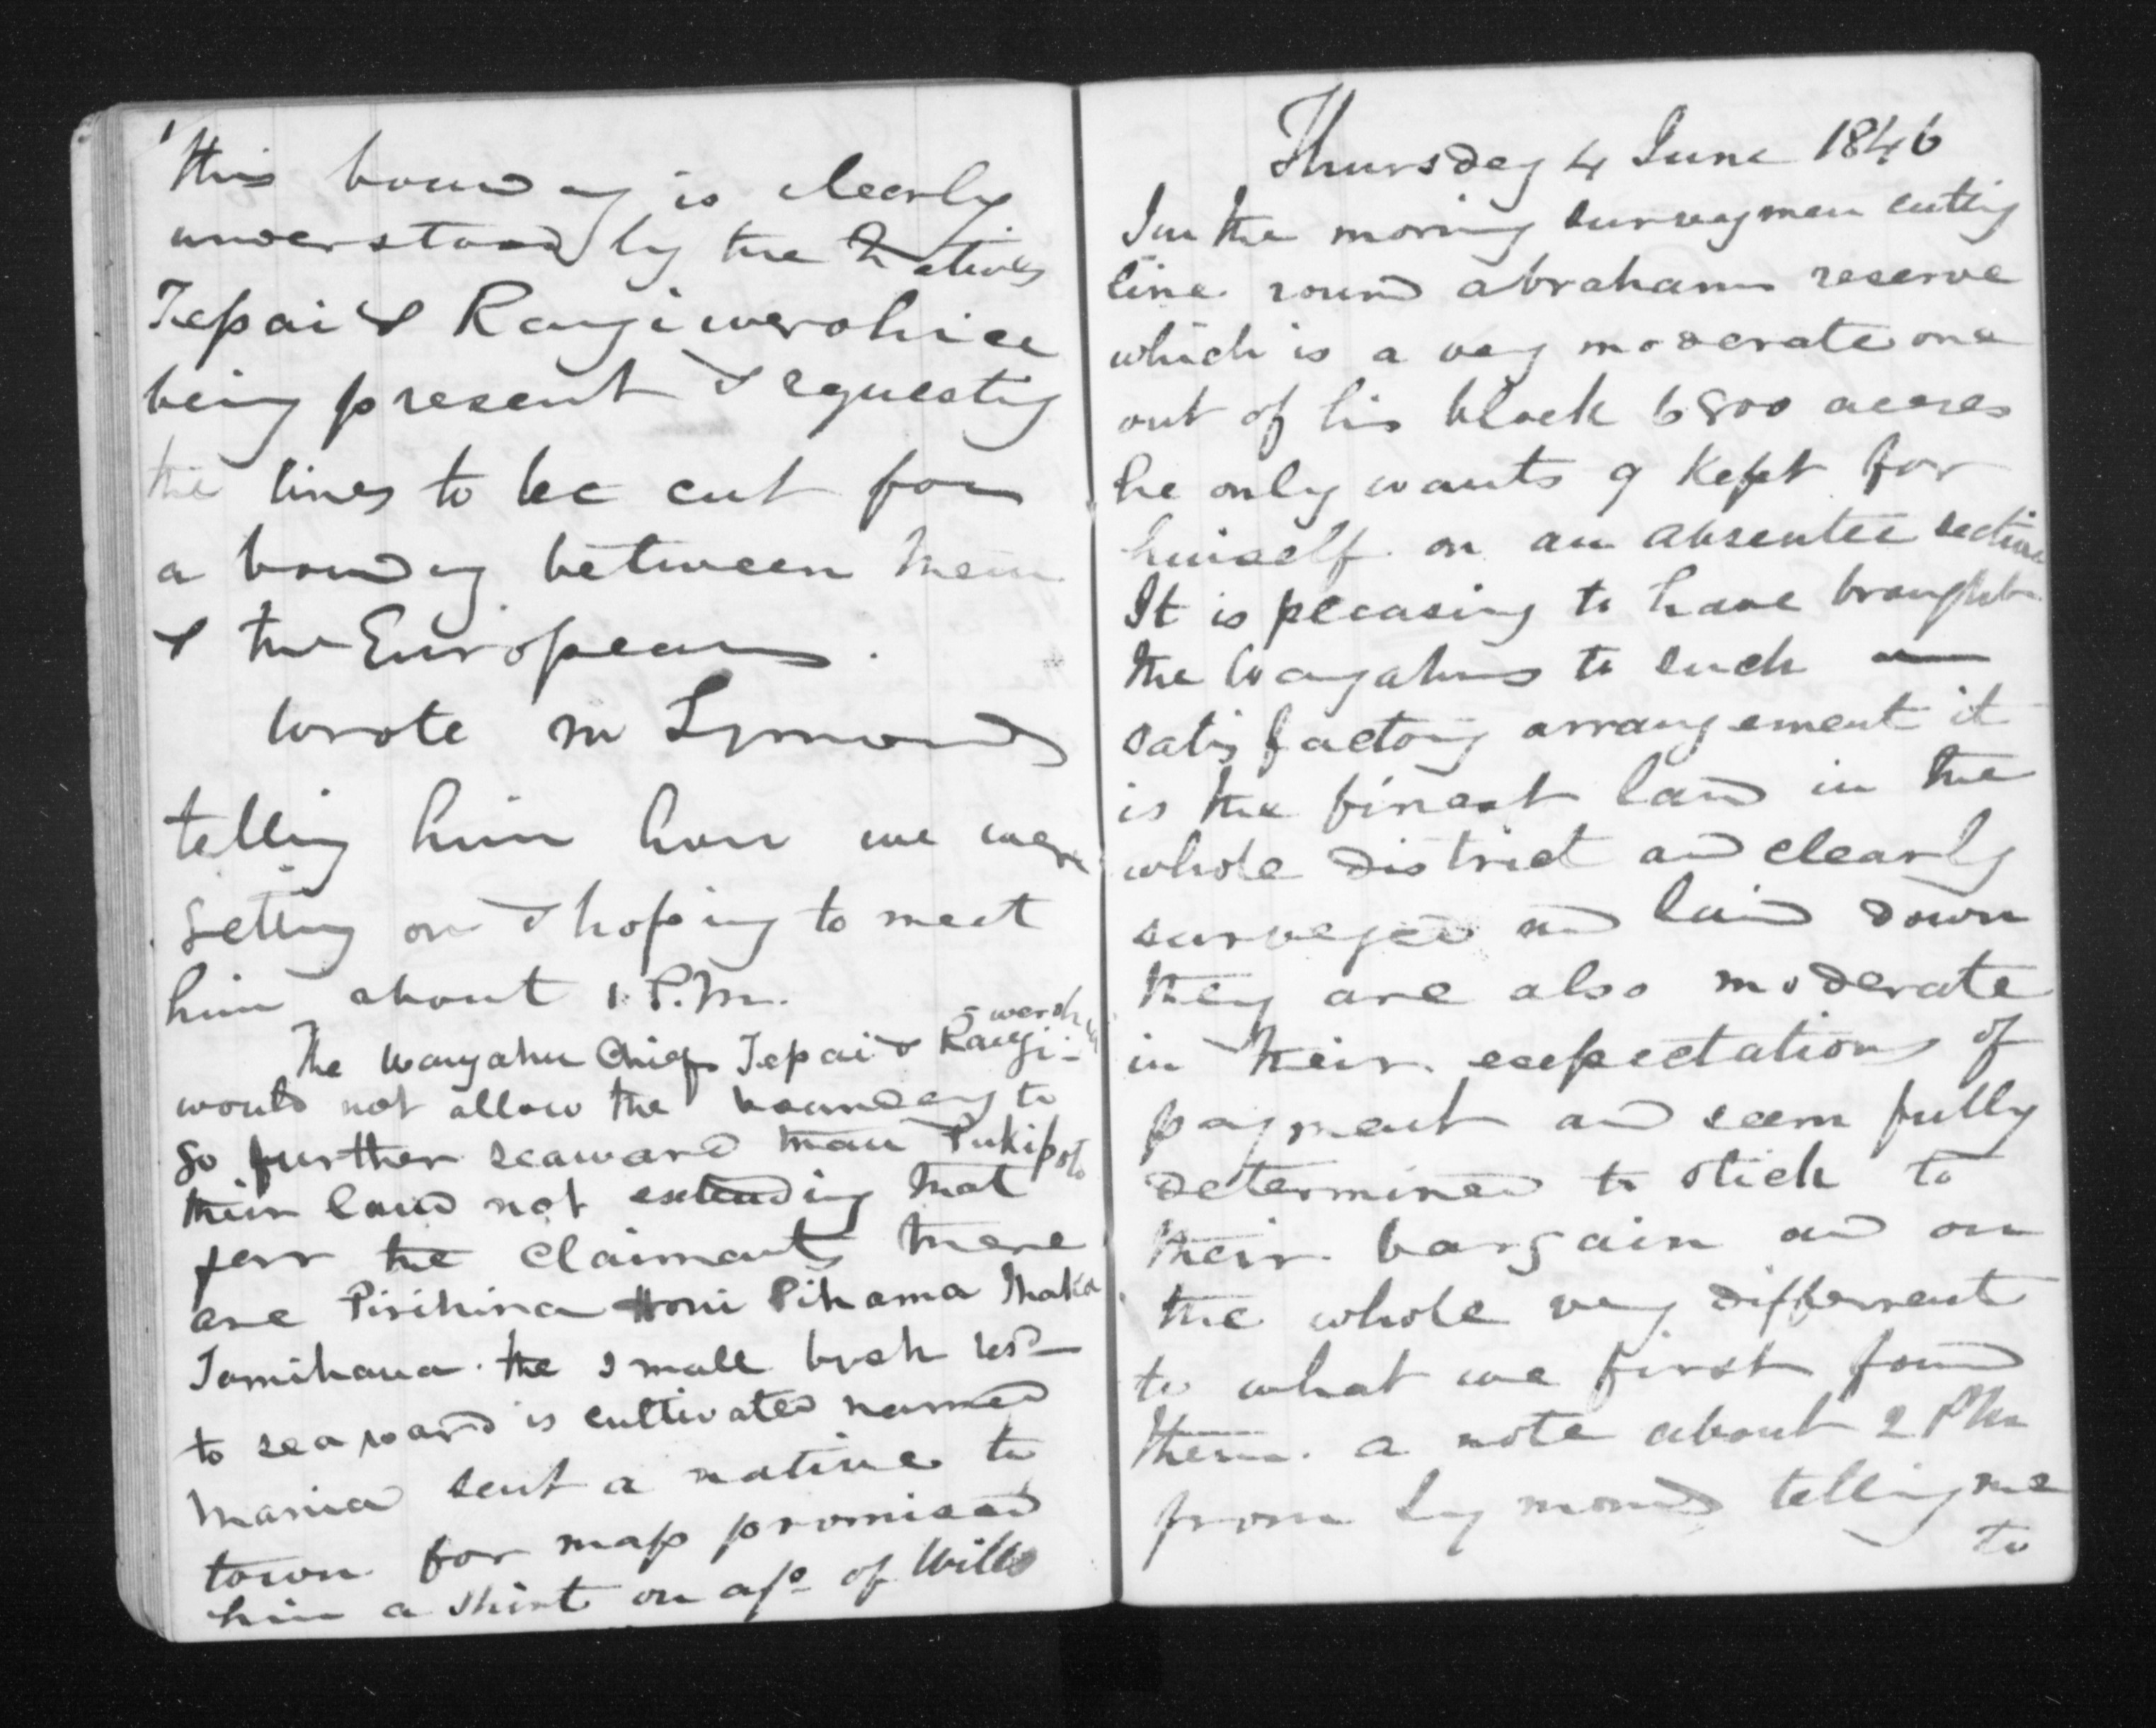 this boundy is clearly
understood by the Natives
Tepai & Rangiwerohice
being present & requesting
the lines to be cut for
a boundy between them
& the Europeans.
wrote Mr Symonds
telling him how we were
getting on & hoping to meet
him about 1 P.M.
-werohice
The Wangahu Chiefs Tepai & Rangi-
would not allow the boundary to
go further seaward than Pukipoto
their land not extending that
farr the claimants there
are Pirihira Honi Pihama Ihaka
Tamihana. the small bush
to seaward is cultivated named
Maria sent a native to
town for map promised
him a shirt on a/c of Wills
Thursday 4 June 1846
In the morning surveymen cutting
line round abrahams reserve
which is a very moderate one
out of his block 6800 acres
he only wants 9 kept for
himself on an absentee section
It is pleasing to have brought
the Wangahus to such
satisfactory arrangement it
is the finest land in the
whole district and clearly
surveyed and laid down
they are also moderate
in their expectations of
payment and seem fully
determined to stick to
their bargain and on
the whole very different
to what we first found
them. a note about 2 PM
from Symonds telling me
to